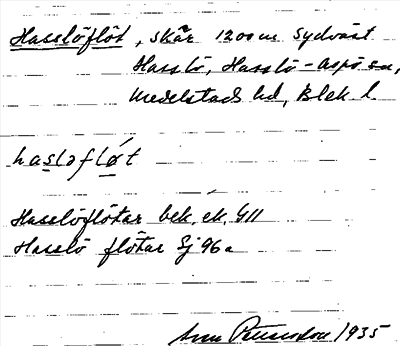 Hasslöflöt, skär 1200 m sydväst
Hasslö, Hasslö-Aspö sn,
Medelstads hd, Blek. l.
hasləfløt
Hasslöflötar bek. ek. 611
Hasslö flötar Sj 96a
1935